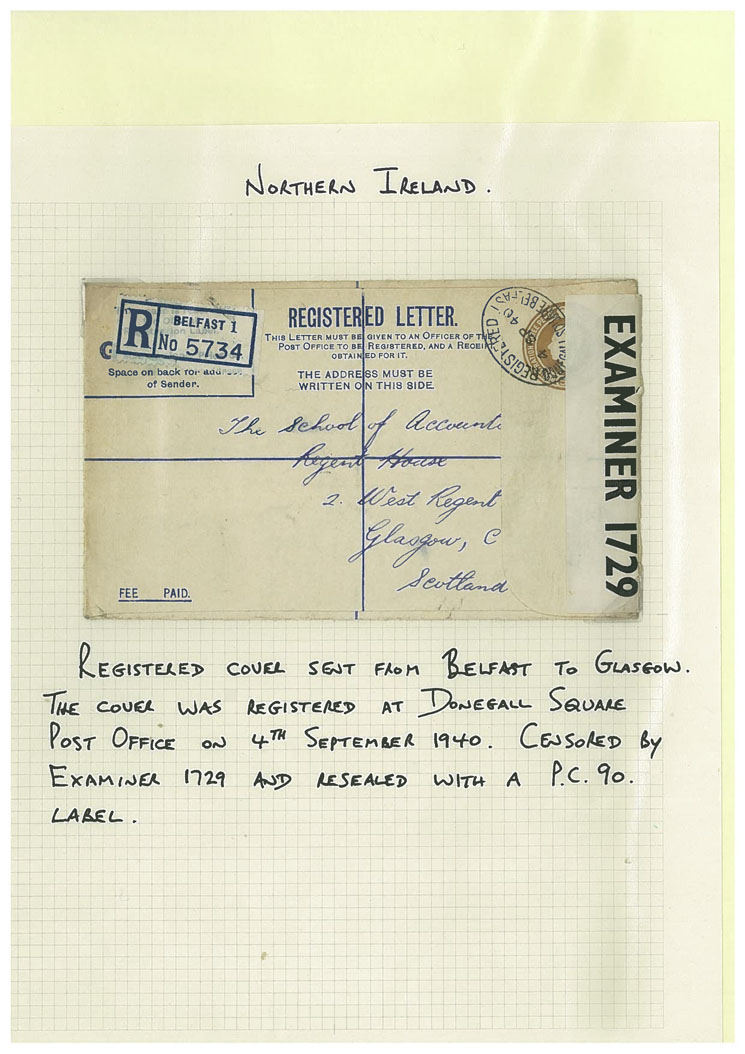 NORTHERN IRELAND.
R
BELFAST 1
No 5734
Space on back for address
of Sender.
REGISTERED LETTER.
THIS LETTER MUST BE GIVEN TO AN OFFICER OF THE
POST OFFICE TO BE REGISTERED, AND A RECEI
OBTAINED FOR IT.
THE ADDRESS MUST BE
WRITTEN ON THIS SIDE.
REGISTERED
BELFAST
EXAMINER 1729
The School of Accounta
Regent House
2. West Regent
Glasgow, C
Scotland
FEE PAID.
REGISTERED COVER SENT FROM BELFAST TO GLASGOW.
THE COVER WAS REGISTERED AT DONEGALL SQUARE
POST OFFICE ON 4TH SEPTEMBER 1940. CENSORED BY
EXAMINER 1729 AND RESEALED WITH A P.C. 90.
LABEL.